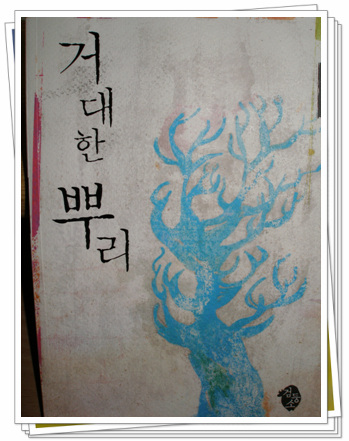 거대한
뿌리